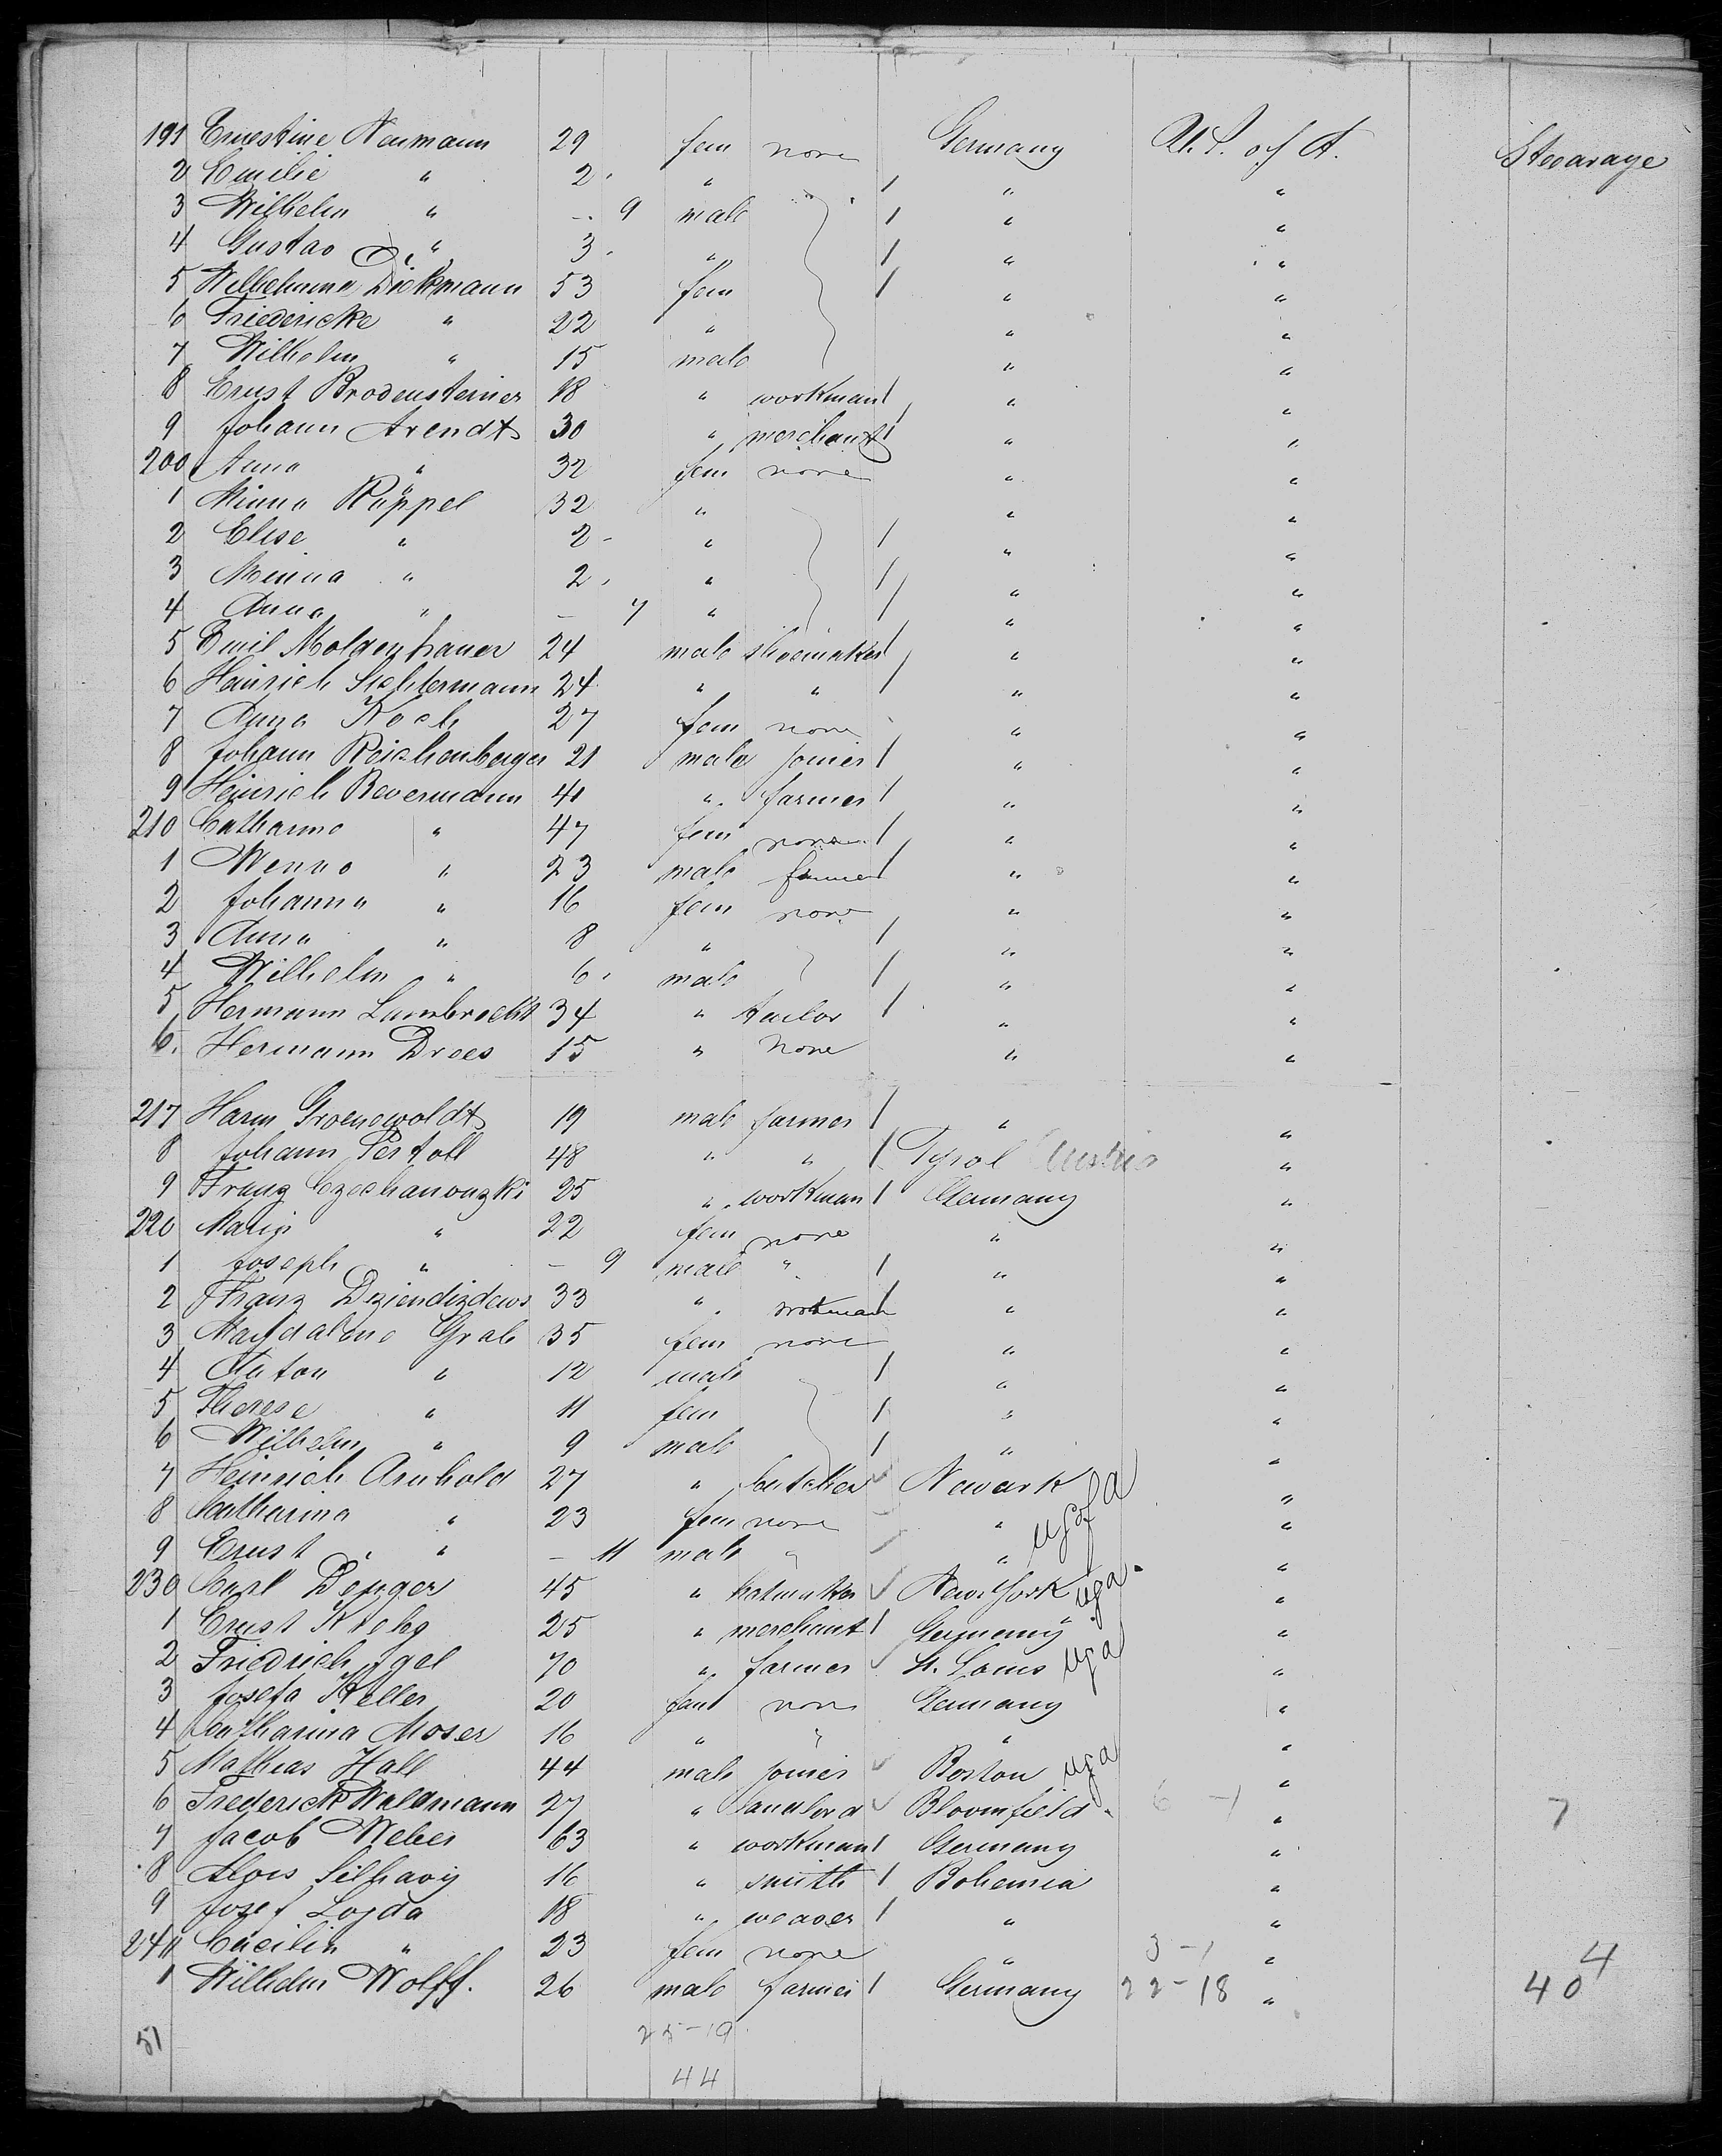 191 Ernestine Neumann 29 fem none Germany U.S. of A. Stearage
2 Emilie " 2 " " "
3 Wilhelm " - 9 male " "
4 Gustav " 3 " " "
5 Wilhelmine Diekmann 53 fem " "
6 Friedericke " 22 " " "
7 Wilhelm " 15 male " "
8 Ernst Brodensteiner 18 " workman " "
9 Johann Arendt 30 " merchant " "
200 Anna " 32 fem none " "
1 Minna Rüppel 32 " " "
2 Elise " 2 " " "
3 Minna " 2 " " "
4 Anna " - 7 " " "
5 Emil Moldenhauer 24 male shoemaker " "
6 Heinrich Sichtermann 24 " " " "
7 Anna Koch 27 fem none " "
8 Johann Reichenberger 21 male joiner " "
9 Heinrich Bevermann 41 " farmer " "
210 Catharine " 47 fem none " "
1 Wenno " 23 male farmer " "
2 Johanna " 16 fem none " "
3 Anna " 8 " " "
4 Wilhelm " 6 male " "
5 Hermann Lambrecht 34 " tailor " "
6. Hermann Drees 15 " none " "
217 Harm Groenewoldt 19 male farmer " "
8 Johann Pertoll 48 " " Tyrol Austria "
9 Franz Czechanouzki 25 " workman Germany "
220 Marie " 22 fem none " "
1 Joseph " - 9 male " " "
2 Franz 33 " workman " "
3 Magdalene Grab 35 fem none " "
4 Anton " 12 male " "
5 Therese " 11 fem " "
6 Wilhelm " 9 male " "
7 Heinrich Arnhold 27 " butcher Newark "
8 Catharina " 23 fem none " US of A "
9 Ernst " - 11 male " " "
230 Carl 45 " hatmaker New York "
1 Ernst 25 " merchant Germany "
2 Friedrich 70 " farmer St. Louis "
3 Josefa Keller 20 fem none Germany "
4 Catharina Moser 16 " " " "
5 Mathias Hall 44 male joiner Boston "
6 Frederick Waldmann 27 " landlord Bloomfield 6 - 1 " 7
7 Jacob Weber 63 " workman Germany "
8 Alois Silhavy 16 " smith Bohemia "
9 Josef Lojda 18 " weaver " "
240 Cäcilia " 23 fem none " 3 - 1 " 4
1 Wilhelm Wolff. 26 male farmer Germany 22 - 18 " 40
51 25 - 19
44